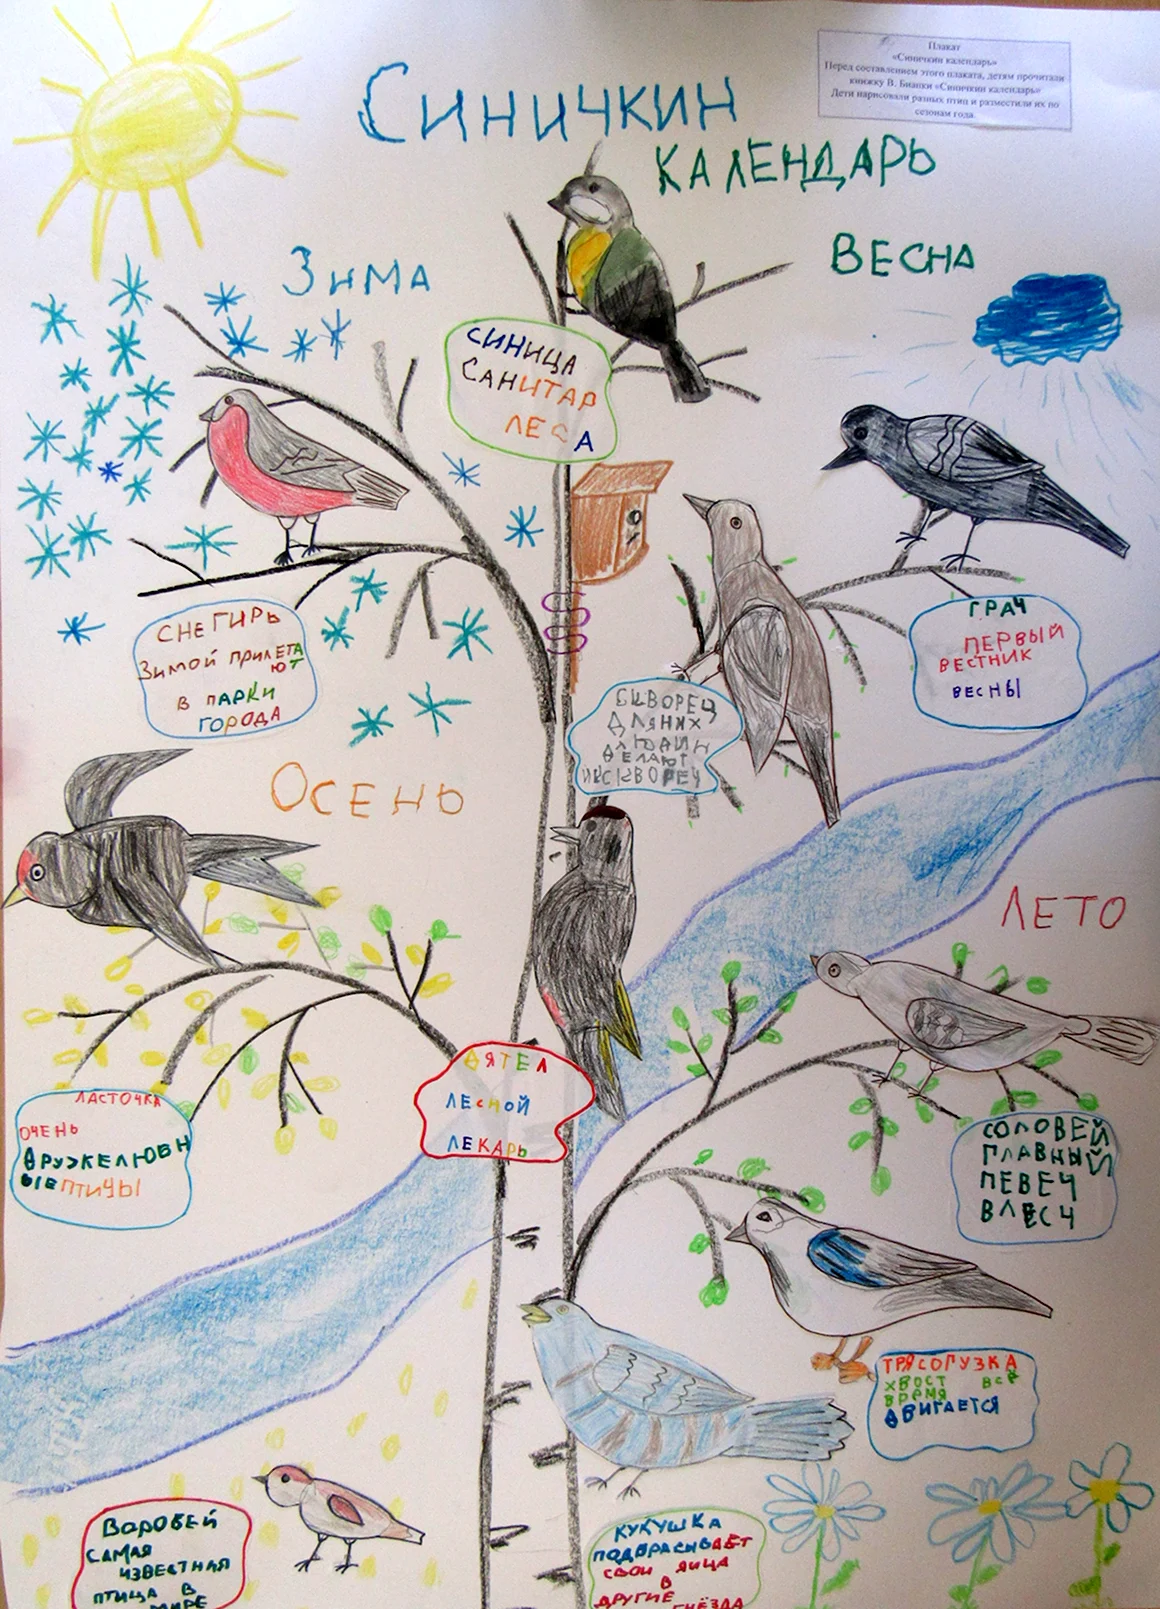 Плакат
«Синичкин календарь»
Перед составлением этого плаката, детям прочитали
книжку В. Бианки «Синичкин календарь»
Дети нарисовали разных птиц и разместили их по
сезонам года.
СИНИЧКИН
КАЛЕНДАРЬ
ЗИМА
ВЕСНА
СИНИЦА
САНИТАР
ЛЕСА
СНЕГИРЬ
ЗИМОЙ ПРИЛЕТА
ЮТ
В ПАРКИ
ГОРОДА
ГРАЧ
ПЕРВЫЙ
ВЕСТНИК
ВЕСНЫ
СКВОРЕЦ
ДЛЯНИХ
ДЕЛАЮТ
ОСЕНЬ
ЛЕТО
ЛАСТОЧКА
ОЧЕНЬ
ДРУЖЕЛЮБН
ЫЕ ПТИЧЫ
ДЯТЕЛ
ЛЕСНОЙ
ЛЕКАРЬ
СОЛОВЕЙ
ГЛАВНЫЙ
ПЕВЕЧ
ВЛЕСЧ
ТРЯСОГУЗКА
ХВОСТ ВСЁ
ВРЕМЯ
ДВИГАЕТСЯ
ВОРОБЕЙ
САМАЯ
ИЗВЕСТНАЯ
ПТИЦА В
МИРЕ
КУКУШКА
ПОДБРАСЫВАЕТ
СВОИ ЯИЦА
В
ДРУГИЕ
ГНЁЗДА